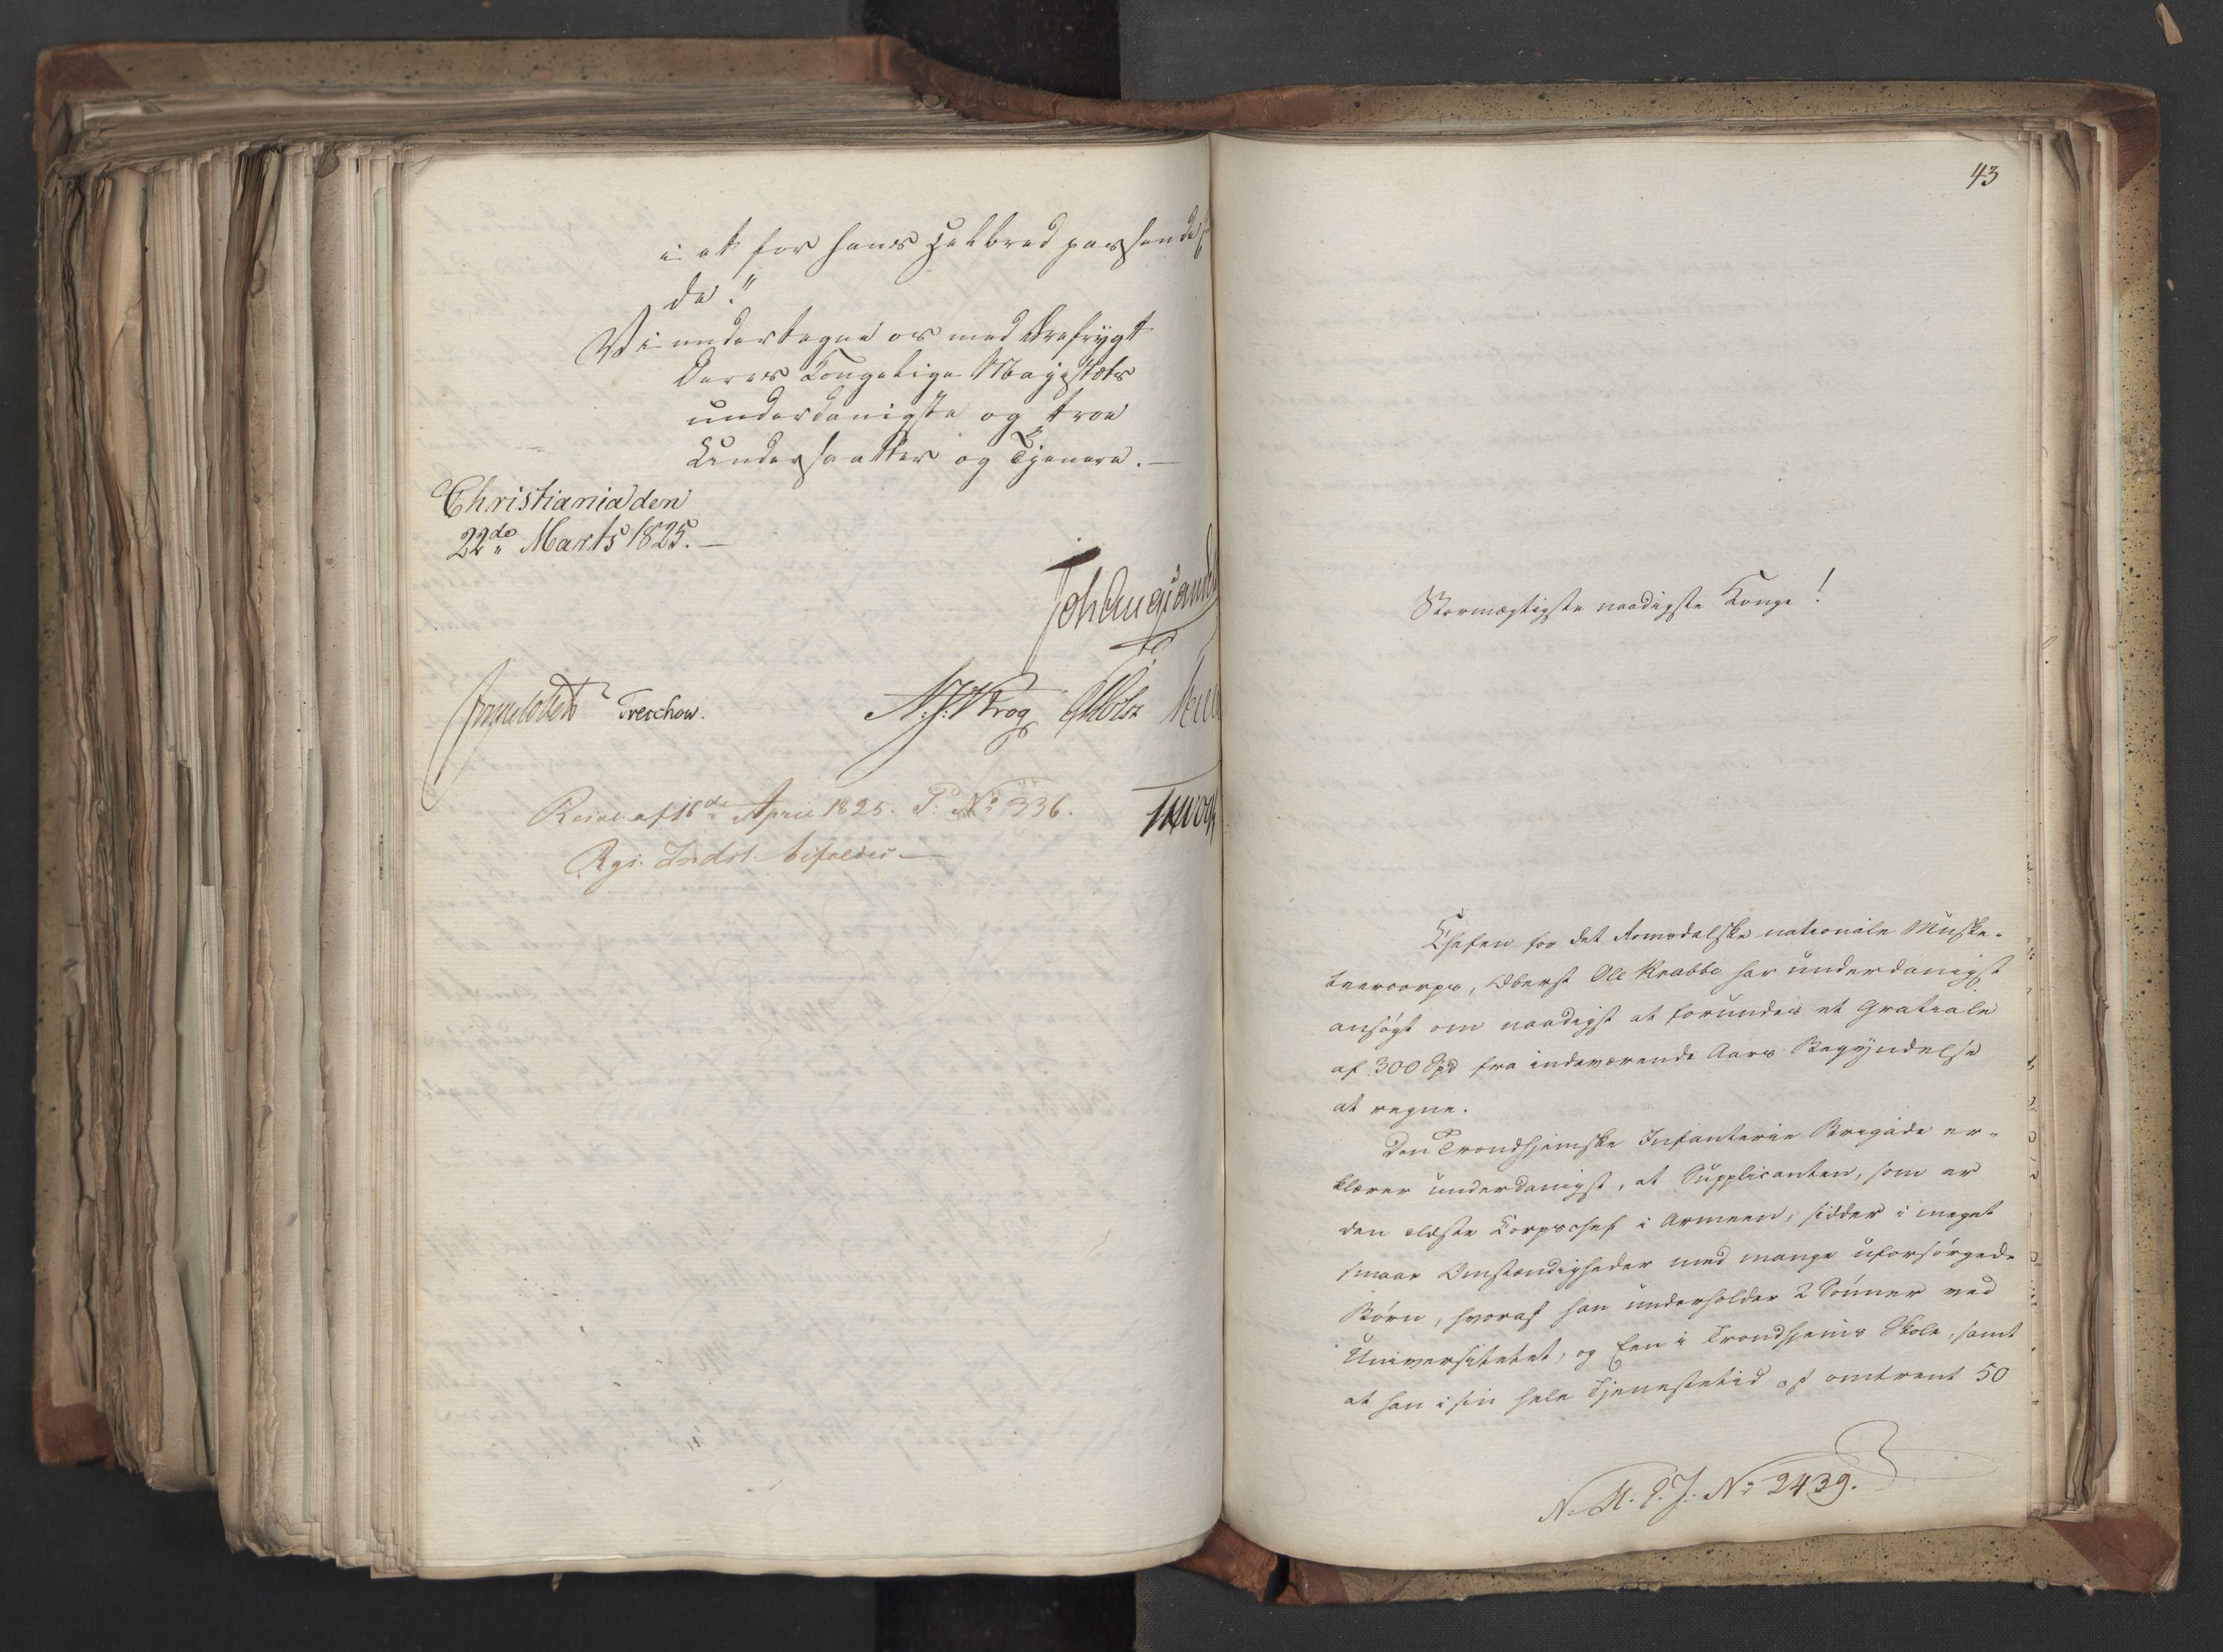 i et for hans Helbred passende
de."
Vi undertegne os med Ærefrygt
Deres Kongelige Majestæts
underdanigste og troe
Undersaatter og Tjenere. —
Christiania den
22de Marts 1825. —
Treschow.
N. J. Krog
Resol. af 16de April 1825. P. No 336.
Rgs. Indst. bifaldes —
43
Stormægtigste naadigste Konge!
Chefen for det Romsdalske nationale Muske-
teercorps, Oberst Ole Krabbe har underdanigst
ansøgt om naadigst at forundes et Gratiale
af 300 Spd fra indeværende Aars Begyndelse
at regne.
Den Trondhjemske Infanterie Brigade er-
klærer underdanigst, at Supplicanten, som er
den ældste Corpschef i Armeen, sidder i meget
smaae Omstændigheder med mange uforsørgede
Børn, hvoraf han underholder 2 Sønner ved
Universitetet, og Een i Trondhjems Skole, samt
at han i sin hele Tjenestetid af omtrent 50
No 2439.